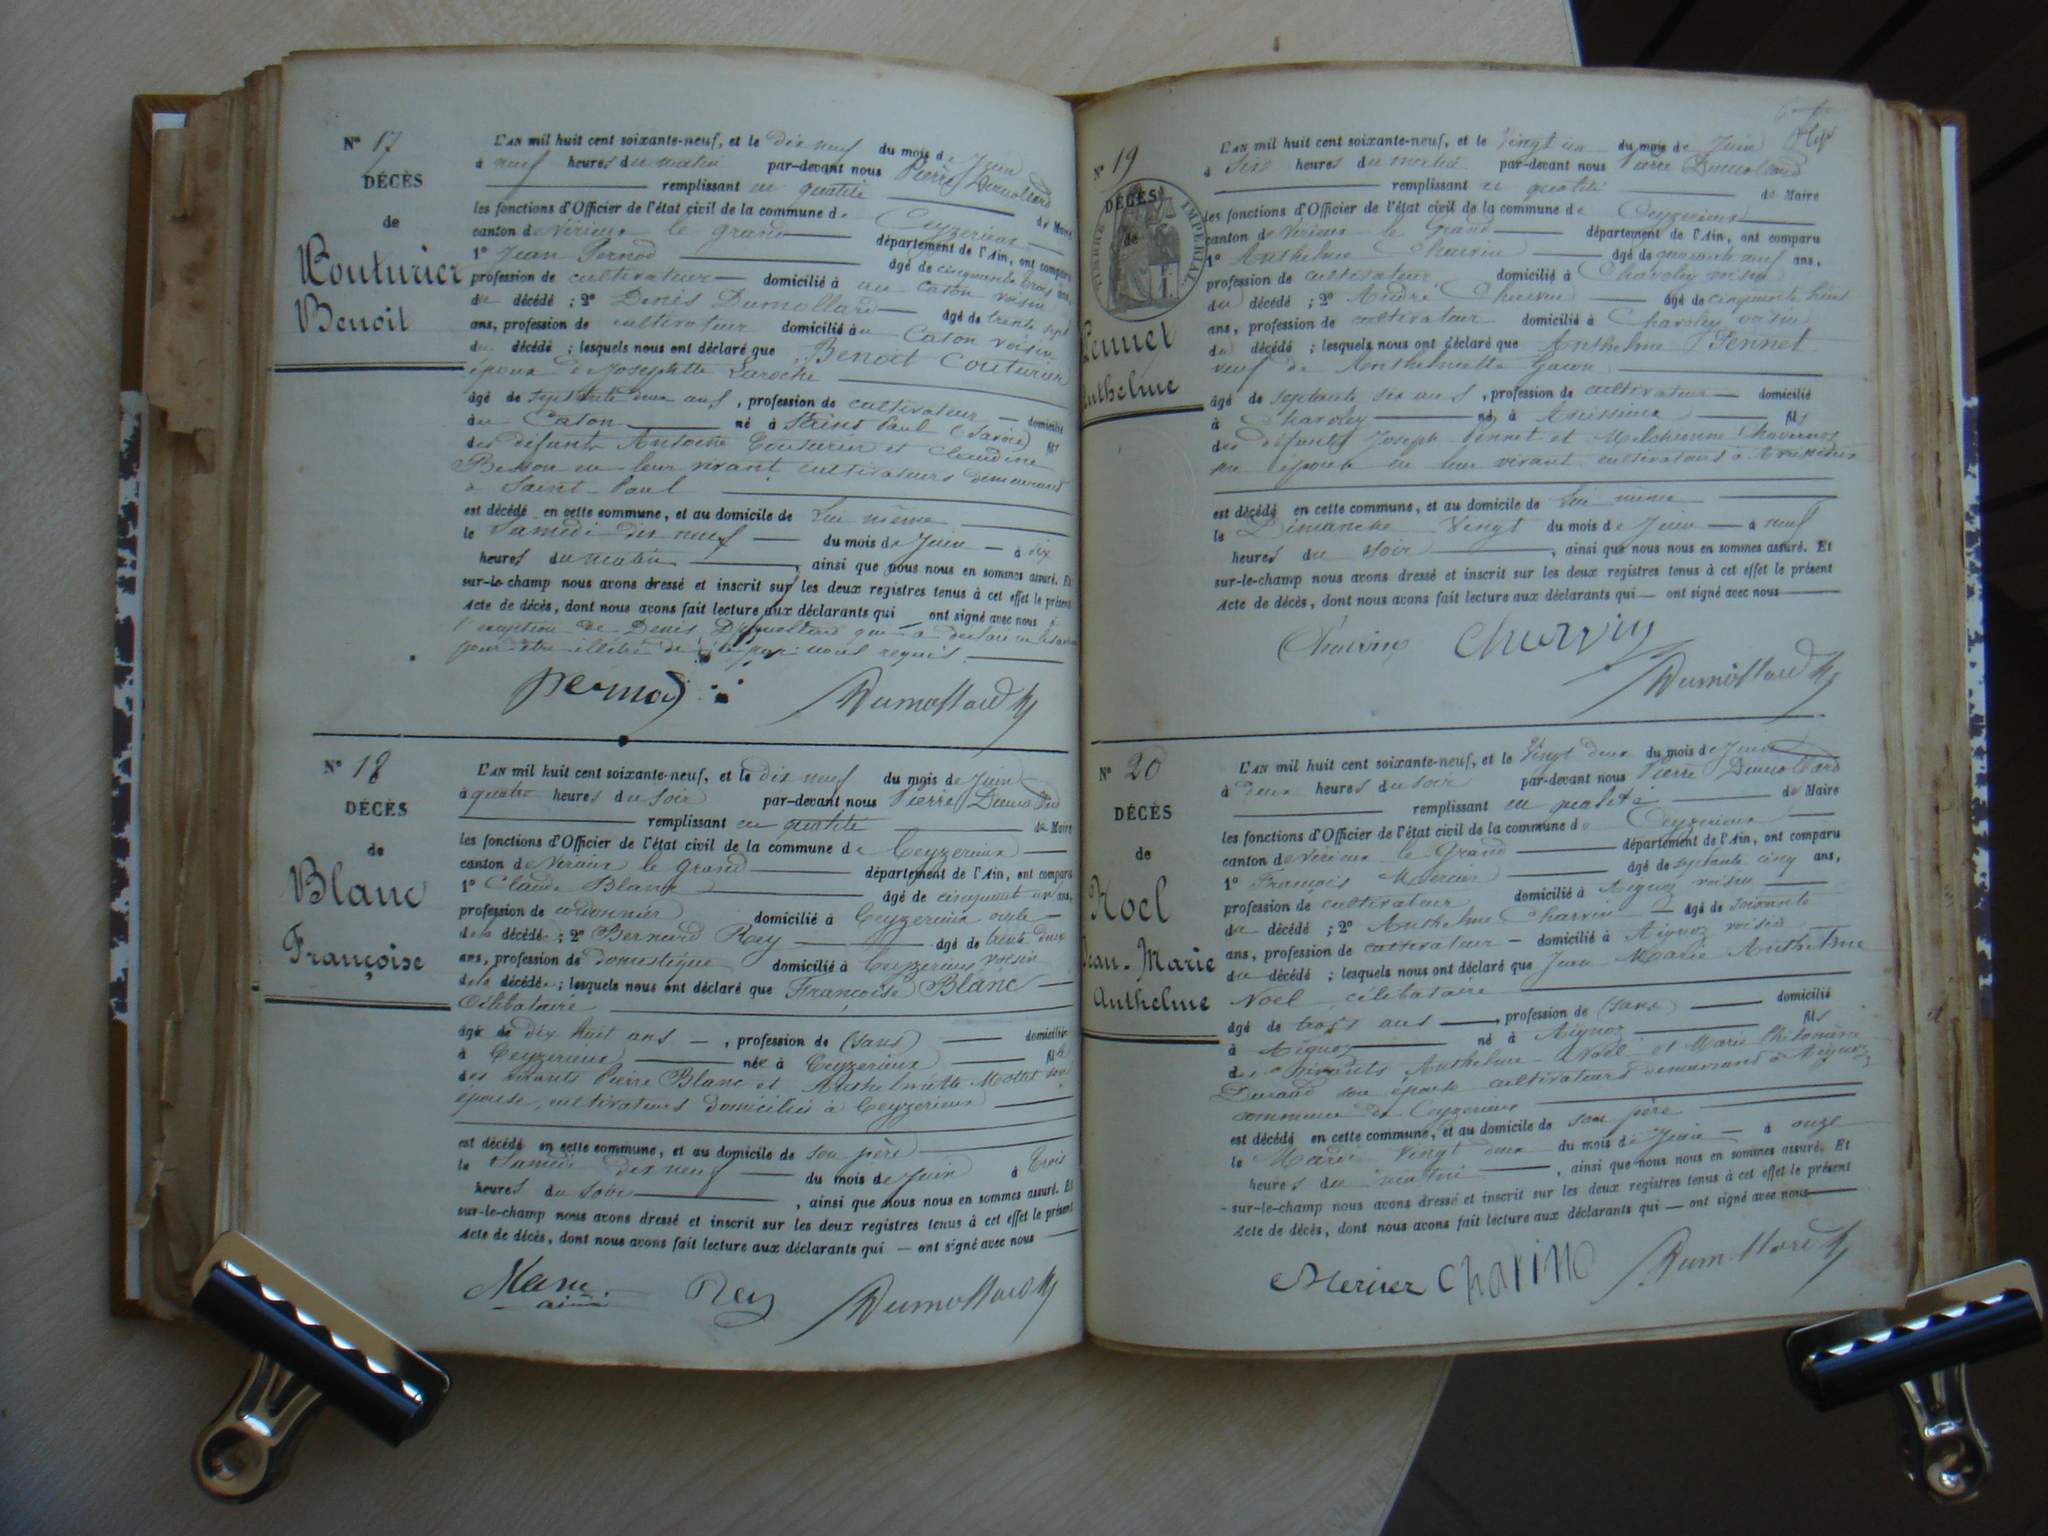 N° 17
DÉCÈS
de
Couturier
Benoit
L'AN mil huit cent soixante-neuf, et le dix neuf du mois de Juin
à neuf heures du matin par-devant nous Pierre Dumollard
remplissant en qualité de Maire
les fonctions d'Officier de l'état civil de la commune de Ceyzerieux
canton de Virieux le grand département de l'Ain, ont comparu
1° Jean Pernod âgé de cinquante trois ans,
profession de cultivateur domicilié à au Caton voisin
du décédé ; 2° Denis Dumollard âgé de trente sept
ans, profession de cultivateur domicilié à au Caton voisin
du décédé ; lesquels nous ont déclaré que Benoit Couturier
époux de Josephte Laroche
âgé de septante deux ans, profession de cultivateur domicilié
au Caton né à Saint Paul (Savoie) fils
des défunts Antoine Couturier et Claudine
Besson en leur vivant cultivateurs demeurant
à Saint-Paul
est décédé en cette commune, et au domicile de Lui même
le Samedi dix neuf du mois de Juin à six
heures du matin, ainsi que nous nous en sommes assuré. Et
sur-le-champ nous avons dressé et inscrit sur les deux registres tenus à cet effet le présent
Acte de décès, dont nous avons fait lecture aux déclarants qui ont signé avec nous à
l'exception de Denis Dumollard qui a déclaré ne le savoir
pour être illétré de ce par nous requis.
Pernod Dumollard
N° 18
DÉCÈS
de
Blanc
Françoise
L'AN mil huit cent soixante-neuf, et le dix neuf du mois de Juin
à quatre heures du soir par-devant nous Pierre Dumollard
remplissant en qualité de Maire
les fonctions d'Officier de l'état civil de la commune de Ceyzerieux
canton de Virieux le grand département de l'Ain, ont comparu
1° Claude Blanc âgé de cinquante un ans,
profession de cordonnier domicilié à Ceyzerieux oncle
de la décédée ; 2° Bernard Rey âgé de trente deux
ans, profession de domestique domicilié à Ceyzerieux voisin
de la décédée ; lesquels nous ont déclaré que Françoise Blanc
Célibataire
âgé de dix huit ans, profession de (sans) domiciliée
à Ceyzerieux née à Ceyzerieux fille
des vivants Pierre Blanc et Anthelmette Mottet son
épouse, cultivateurs domiciliés à Ceyzerieux
est décédé en cette commune, et au domicile de son père
le Samedi dix neuf du mois de Juin à trois
heures du soir, ainsi que nous nous en sommes assuré. Et
sur-le-champ nous avons dressé et inscrit sur les deux registres tenus à cet effet le présent
Acte de décès, dont nous avons fait lecture aux déclarants qui ont signé avec nous
Rey Dumollard
N° 19
DÉCÈS
de
TIMBRE IMPÉRIAL
Pennet
Anthelme
L'AN mil huit cent soixante-neuf, et le vingt un du mois de Juin
à Six heures du matin par-devant nous Pierre Dumollard
remplissant en qualité de Maire
les fonctions d'Officier de l'état civil de la commune de Ceyzerieux
canton de Virieux le Grand département de l'Ain, ont comparu
1° Anthelme Charvin âgé de quarante neuf ans,
profession de cultivateur domicilié à Chavoley voisin
du décédé ; 2° André Charvin âgé de cinquante huit
ans, profession de cultivateur domicilié à Chavoley voisin
du décédé ; lesquels nous ont déclaré que Anthelme Pennet
veuf de Anthelmette Gacon
âgé de septante six ans, profession de cultivateur domicilié
à Chavoley né à fils
des défunts Joseph Pennet et
son épouse en leur vivant cultivateurs à
est décédé en cette commune, et au domicile de Lui même
le Dimanche Vingt du mois de Juin à neuf
heures du soir, ainsi que nous nous en sommes assuré. Et
sur-le-champ nous avons dressé et inscrit sur les deux registres tenus à cet effet le présent
Acte de décès, dont nous avons fait lecture aux déclarants qui ont signé avec nous
Charvin Charvin
Dumollard
N° 20
DÉCÈS
de
Noel
Jean-Marie
Anthelme
L'AN mil huit cent soixante-neuf, et le vingt deux du mois de Juin
à deux heures du soir par-devant nous Pierre Dumollard
remplissant en qualité de Maire
les fonctions d'Officier de l'état civil de la commune de Ceyzerieux
canton de Virieux le Grand département de l'Ain, ont comparu
1° François Mercier âgé de septante cinq ans,
profession de cultivateur domicilié à Aignoz voisin
du décédé ; 2° Anthelme Charvin âgé de soixante
ans, profession de cultivateur domicilié à Aignoz voisin
du décédé ; lesquels nous ont déclaré que Jean Marie Anthelme
Noel célibataire
âgé de trois ans, profession de (sans) domicilié
à Aignoz né à Aignoz fils
des vivants Anthelme Noël et Marie Philomène
Durand son épouse cultivateurs demeurant à Aignoz
commune de Ceyzerieux
est décédé en cette commune, et au domicile de son père
le Mardi vingt deux du mois de Juin à onze
heures du matin, ainsi que nous nous en sommes assuré. Et
sur-le-champ nous avons dressé et inscrit sur les deux registres tenus à cet effet le présent
Acte de décès, dont nous avons fait lecture aux déclarants qui ont signé avec nous
Mercier Charvin Dumollard